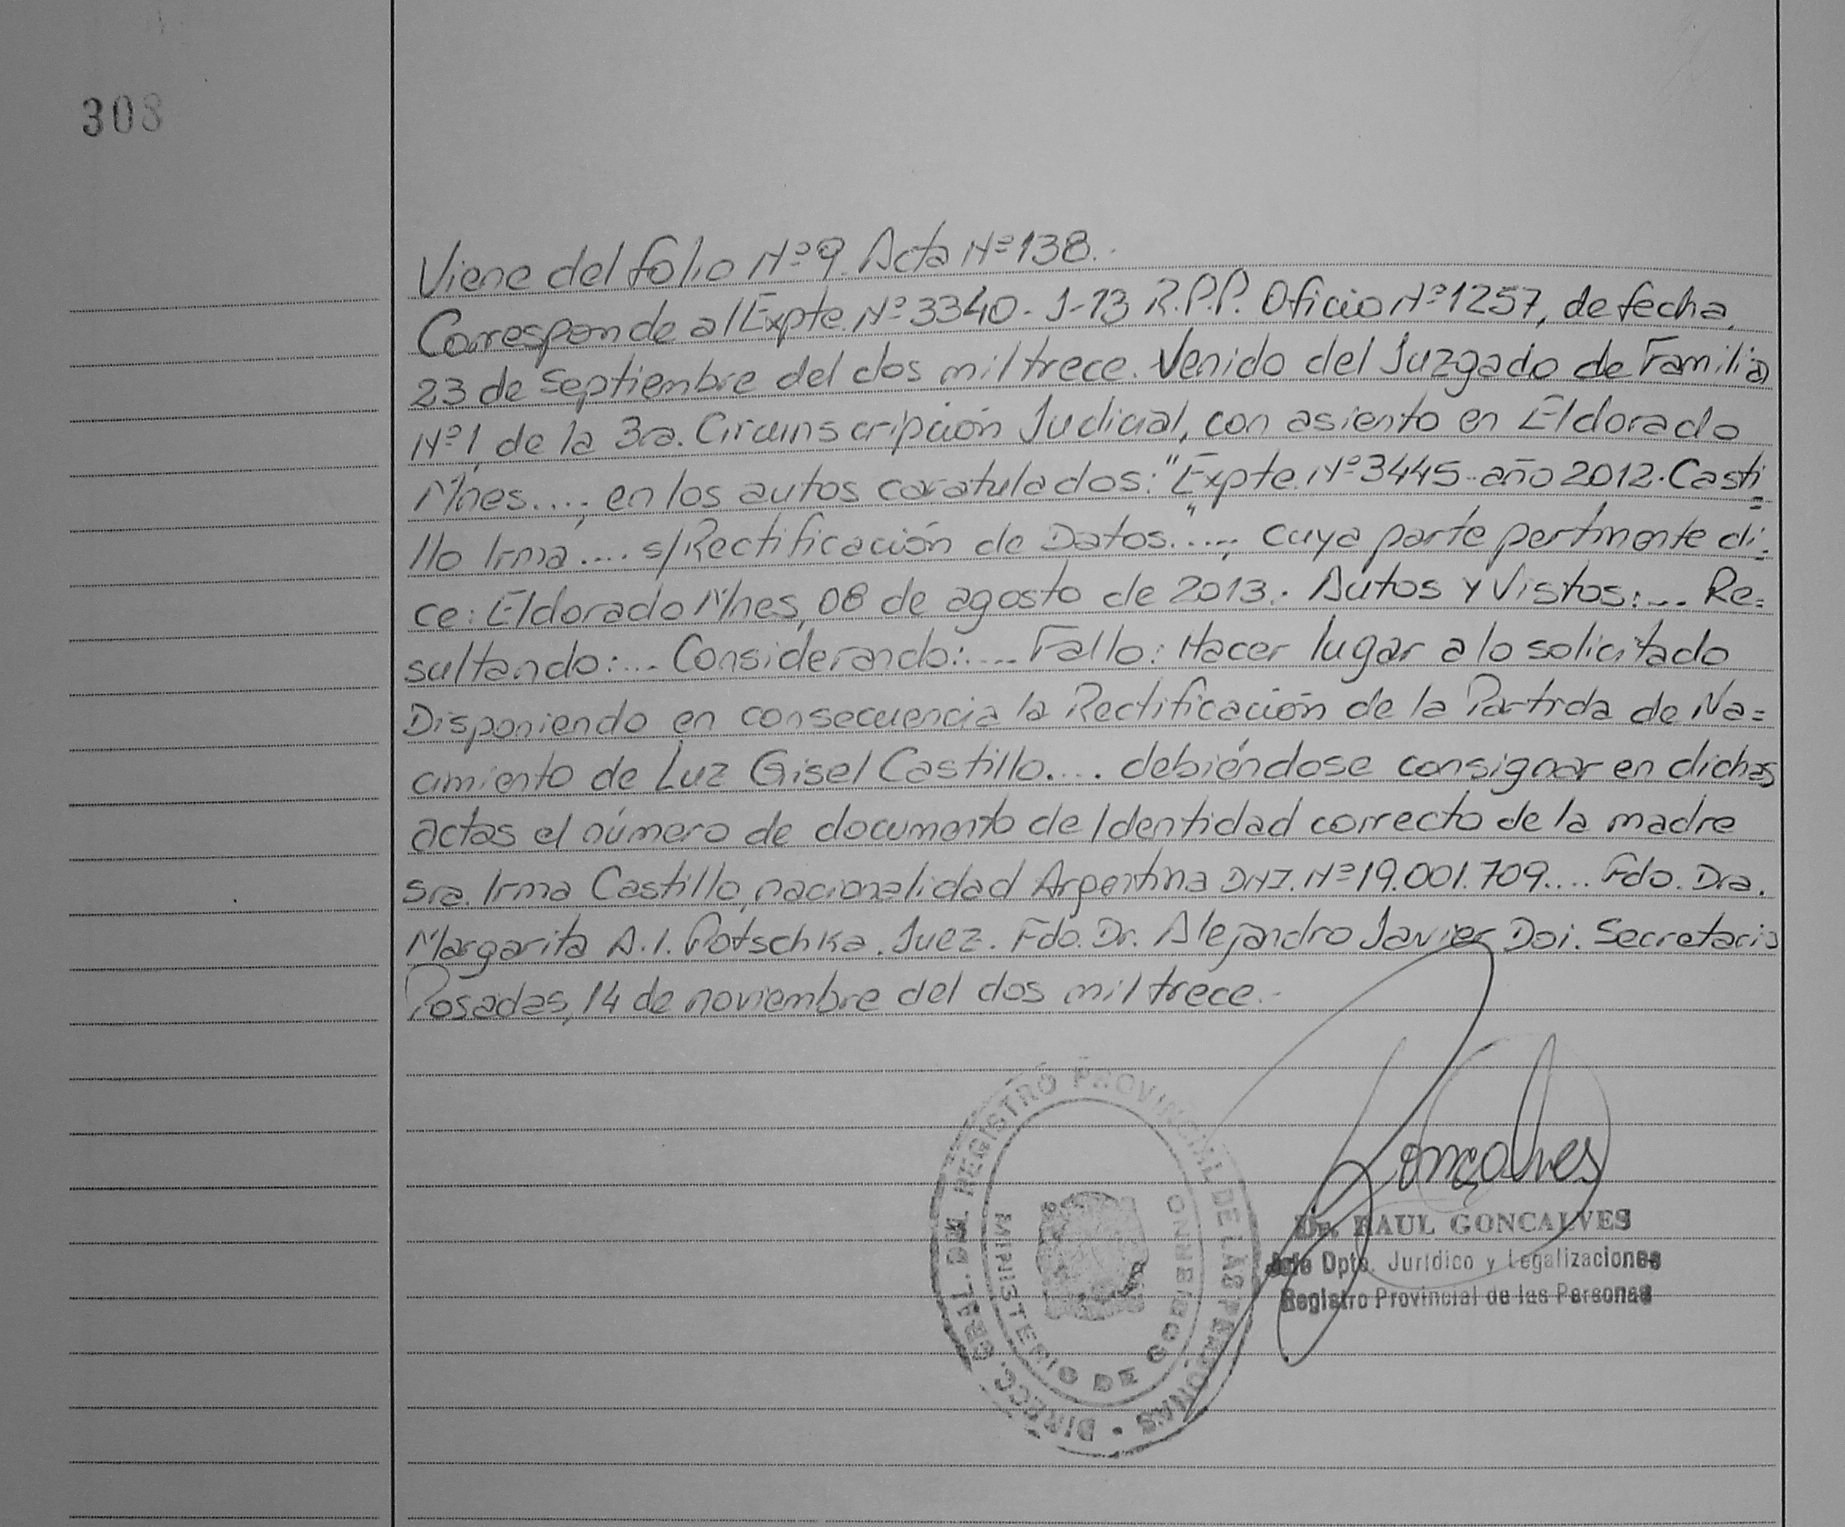 308
Viene del folio Nº 9. Acta Nº 138.
Corresponde al Expte. Nº 3340-J-13 R.P.P. Oficio Nº 1257, de fecha,
23 de Septiembre del dos mil trece. Venido del Juzgado de Familia
Nº 1, de la 3ra. Circunscripción Judicial, con asiento en Eldorado
Mnes....; en los autos caratulados: "Expte. Nº 3445-año 2012. Casti=
llo Irma.... s/Rectificación de Datos....", cuya parte pertinente di=
ce: Eldorado Mnes, 08 de agosto de 2013.. Autos y Vistos:... Re=
sultando:... Considerando:.... Fallo: Hacer lugar a lo solicitado
Disponiendo en consecuencia la Rectificación de la Partida de Na=
cimiento de Luz Gisel Castillo.... debiéndose consignar en dichas
actas el número de documento de Identidad correcto de la madre
Sra. Irma Castillo, nacionalidad Argentina DNI. Nº 19.001.709.... Fdo. Dra.
Margarita A. I. Potschka. Juez. Fdo. Dr. Alejandro Javier Doi. Secretario
Posadas, 14 de noviembre del dos mil trece.-
Goncalves
DIRECC. GRAL. DEL REGISTRO PROVINCIAL DE LAS PERSONAS
MINISTERIO DE GOBIERNO
Dr. RAUL GONCALVES
Jefe Dpto. Jurídico y Legalizaciones
Registro Provincial de las Personas